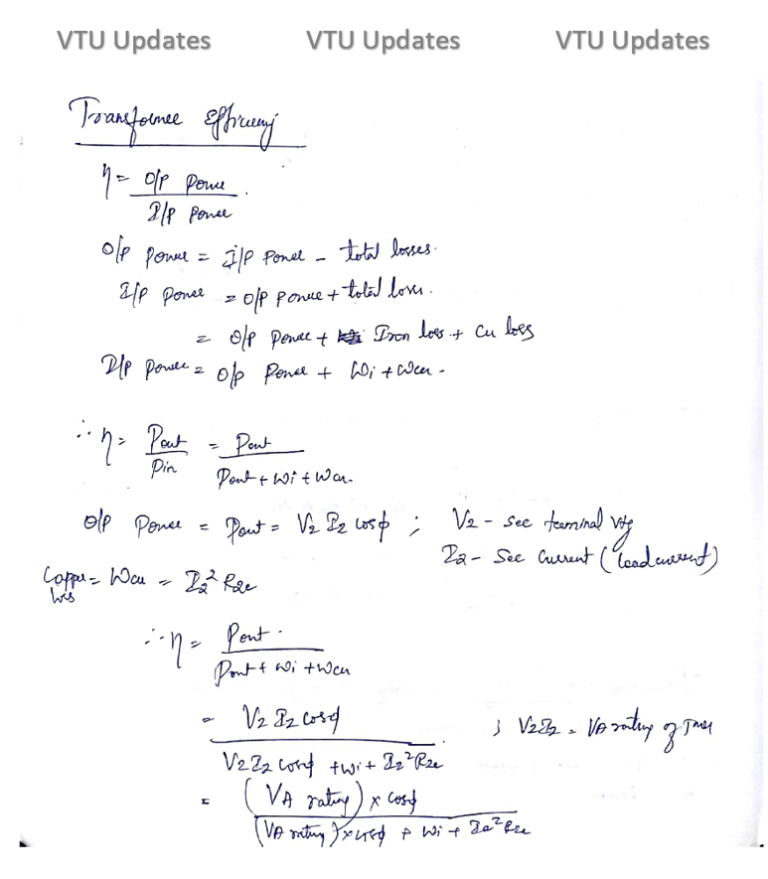 VTU Updates VTU Updates VTU Updates
Transformer Efficiency
η = O/P Power / I/P Power
O/P Power = I/P Power - total losses.
I/P Power = O/P Power + total loss.
= O/P Power + Iron loss + Cu loss
I/P Power = O/P Power + Wi + Wcu.
∴ η = Pout / Pin = Pout / Pout + Wi + Wcu.
O/P Power = Pout = V2 I2 cosφ ; V2 - Sec terminal Vtg
I2 - Sec Current (load current)
Copper loss = Wcu = I2² R2e
∴ η = Pout. / Pout + Wi + Wcu
= V2 I2 cosφ / V2 I2 cosφ + Wi + I2² R2e ; V2I2 = VA rating of
= (VA rating) x cosφ / (VA rating) x cosφ + Wi + I2² R2e